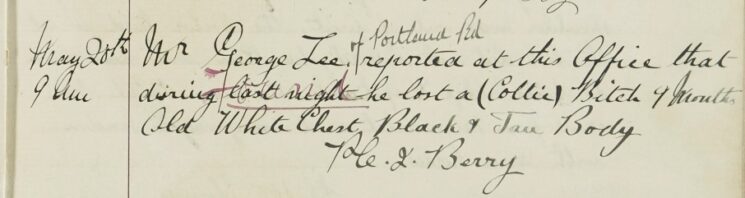 May 20th Mr George Lee, of Portland Rd reported at this Office that
9 Am during last night he lost a (Collie) Bitch 9 Months
Old White Chest, Black & Tan Body
Berry